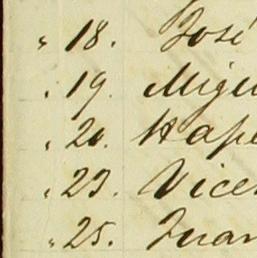 " 18. José
" 19. Migu
" 20. Hape
" 23. Vice
" 25. Juan